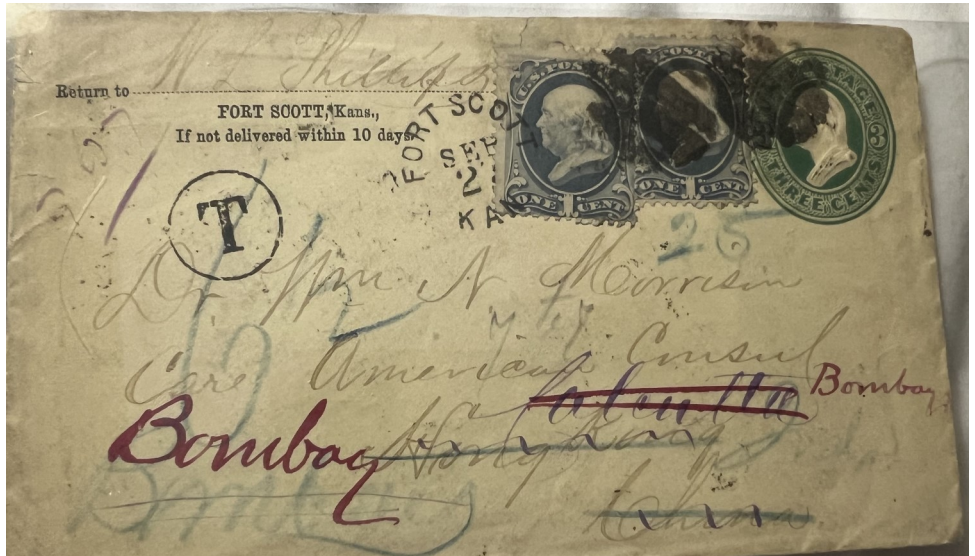 W L Phillips
Return to
FORT SCOTT, Kans.,
If not delivered within 10 days.
FORT SCOTT
SEP
2
KAN
U.S. POSTAGE
ONE 1 CENT
POSTAGE
ONE 1 CENT
POSTAGE
3
THREE CENTS
T
25
Dr Wm N Morrison
Care American Consul
Calcutta
Bombay
Bombay
Hong Kong
China